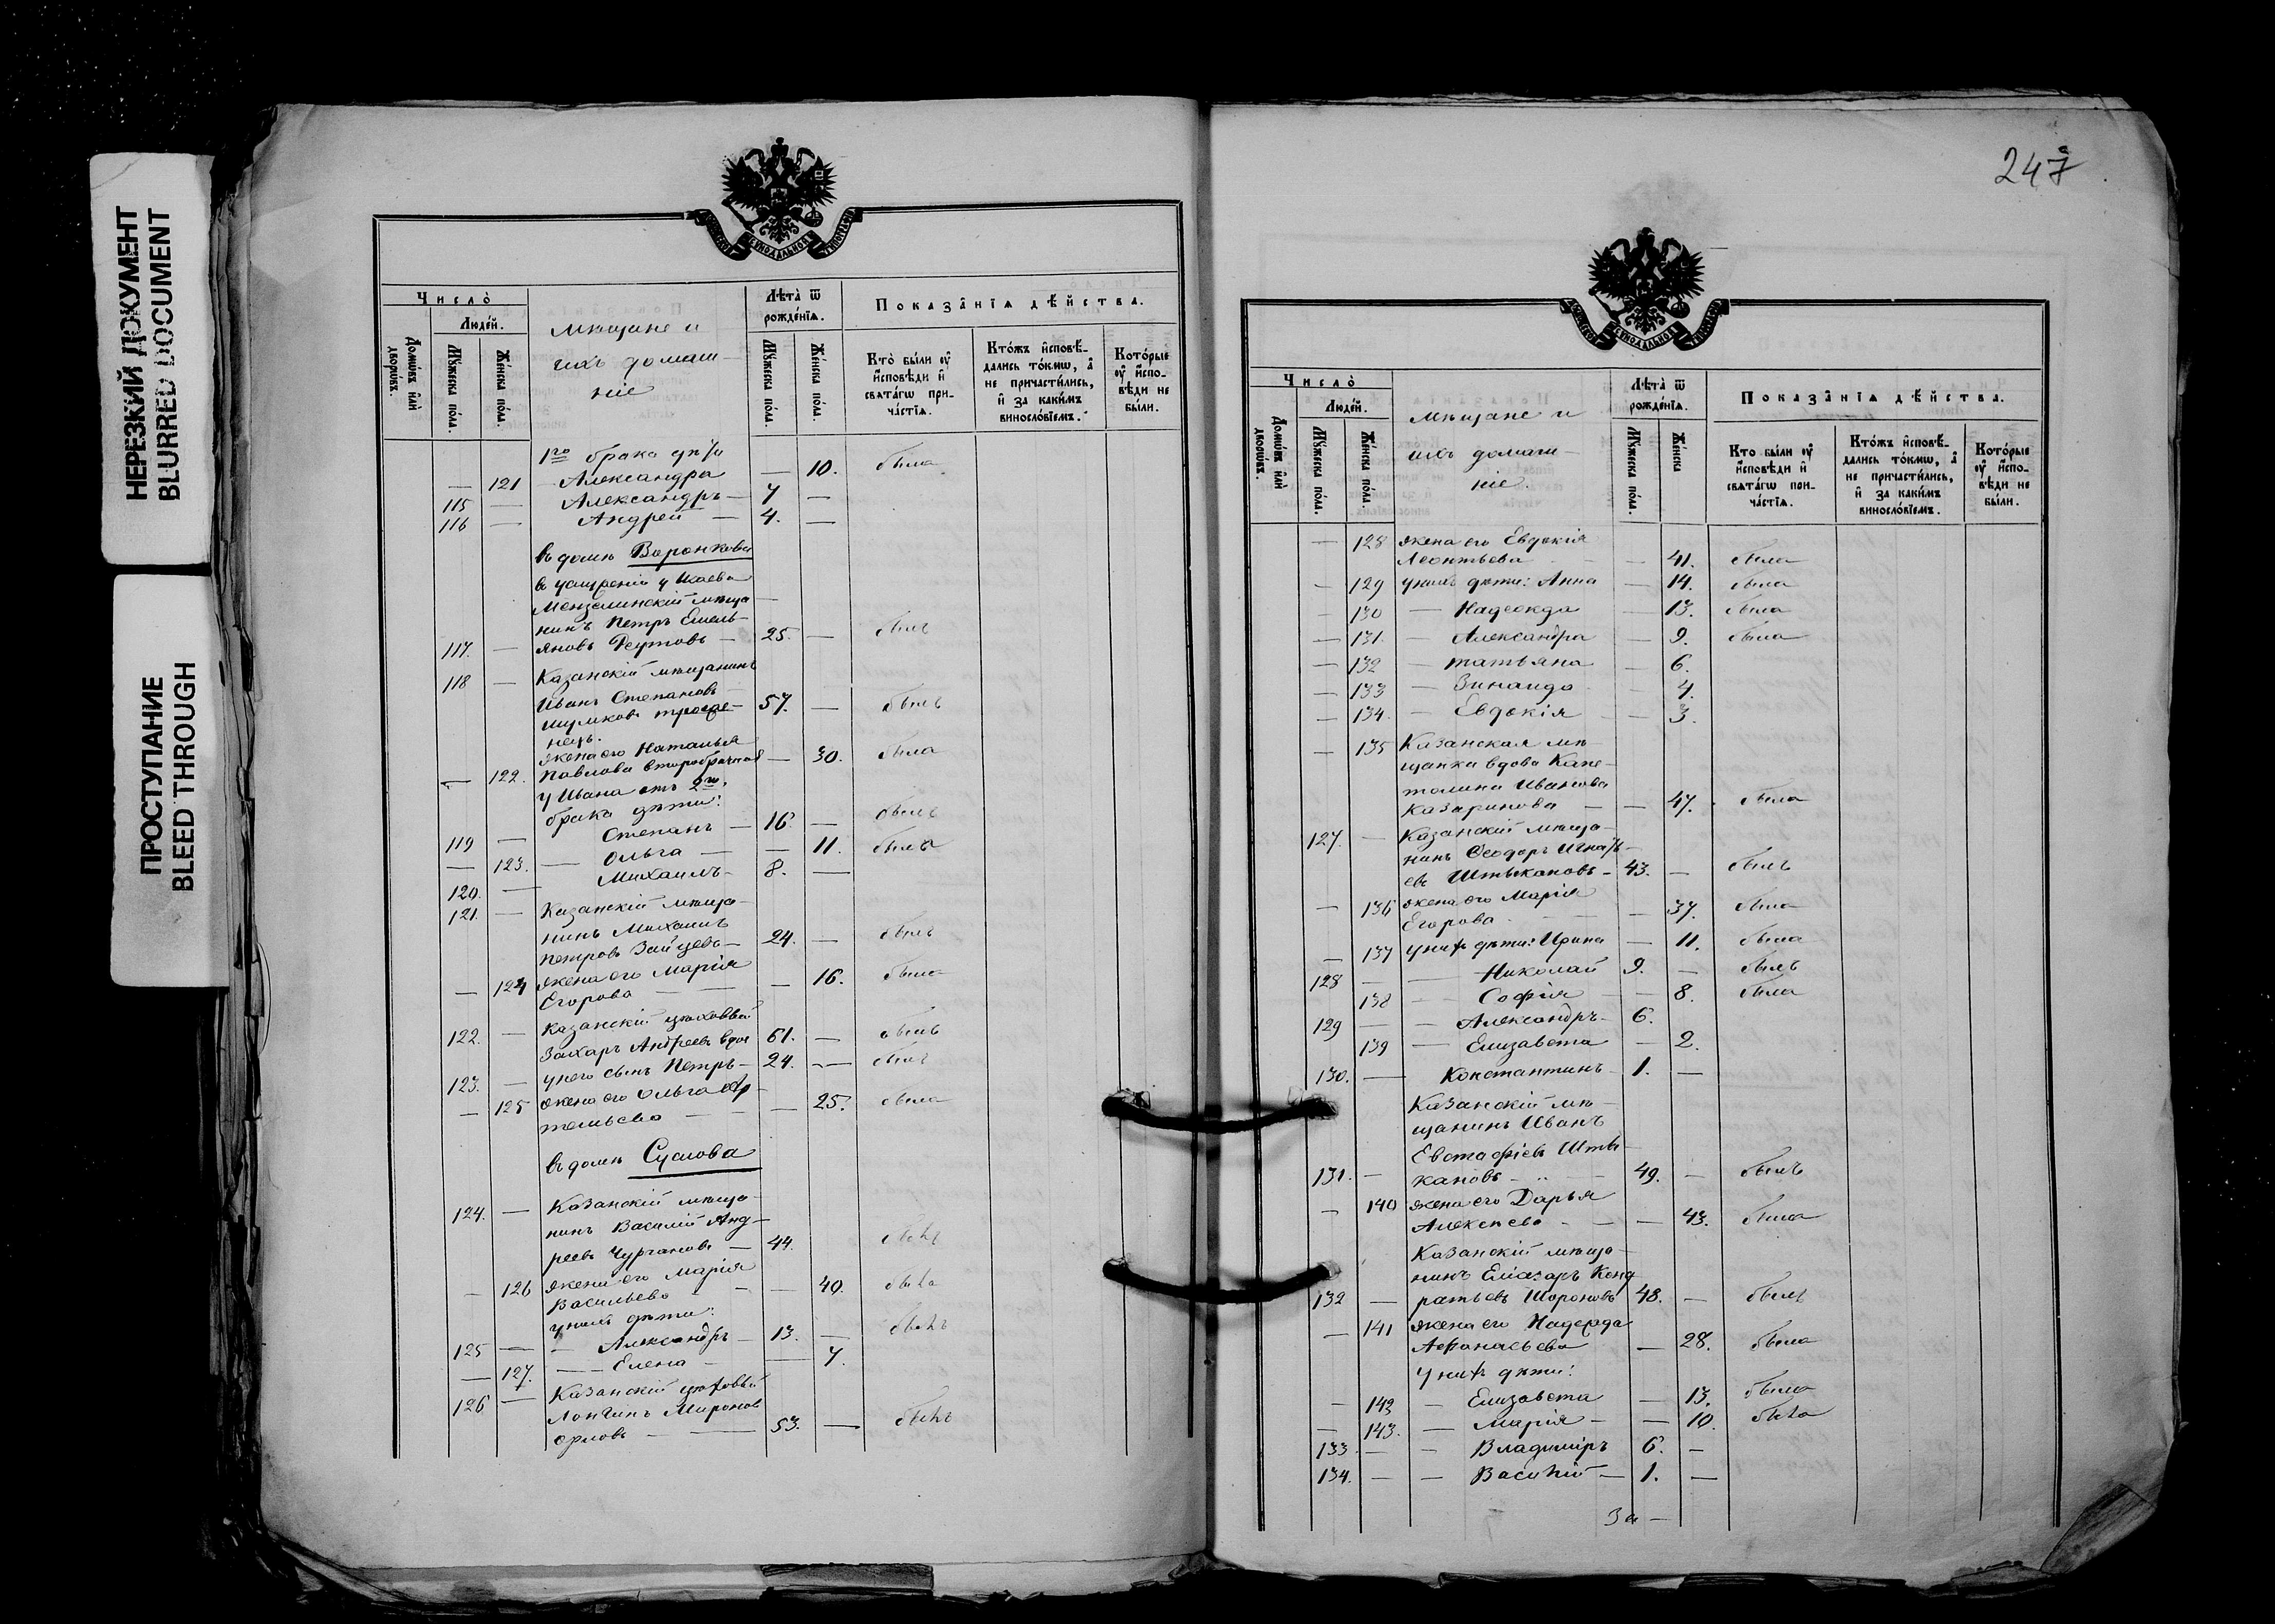 НЕРЕЗКИЙ ДОКУМЕНТ
BLURRED DOCUMENT
ПРОСТУПАНИЕ
BLEED THROUGH
Число̀
Люде́й.
Домѡ́въ и҆лѝ дворѡ́въ.
Мꙋ́жеска по́ла.
Же́нска по́ла.
Мѣщане и
ихъ домаш-
ніе
Лѣ́та ѿ рожде́нїѧ.
Мꙋ́жеска по́ла.
Же́нска по́ла.
Показа̑нїѧ дѣ́йства.
Кто̀ бы́ли ᲂу҆ и҆сповѣ́ди и҆ свѧта́гѡ прича́стїѧ.
Кто́жъ и҆сповѣ́дались то́кмѡ, а҆ не причасти́лись, и҆ за каки́мъ винослоо́вїемъ.
Кото́рые ᲂу҆ и҆сповѣ́ди не бы́ли.
1го брака дѣти
— 121 Александра — 10. была
115 — Александръ — 7 —
116 — Андрей — 4. —
въ домѣ Воронкова
Мензелинскій мѣща-
нинъ Петръ Емель-
117. — яновъ Реутовъ — 25. — былъ
118 — Казанскій мѣщанинъ
Иванъ Степановъ
57. — былъ
жена его Наталья
— 122. Павлова второбрачная — 30. была
у Ивана отъ 2го
брака дѣти:
119 — Степанъ — 16. — былъ
— 123. — Ольга — — 11. была
120. — Михаилъ — 8. —
121. — Казанскій мѣща-
нинъ Михаилъ
Петровъ Зайцевъ — 24. — былъ
— 124 жена его Марія
Егорова — — 16. была
122. — Казанскій цѣховый
Захаръ Андреевъ вдов 61. — былъ
123. — у него сынъ Петръ — 24. — былъ
— 125 жена его Ольга
— 25. была
въ домѣ Суслова
124. — Казанскій мѣща-
нинъ Василій Анд-
реевъ Чургановъ — 44. былъ
— 126 жена его Марія
Васильева — — 40. была
у нихъ дѣти:
125 — — Александръ — 13. — былъ
— 127. — Елена — — 7.
126 — Казанскій цѣховый
Лонгинъ Мироновъ
Орловъ — 53. — былъ
247
Число̀
Люде́й.
Домѡ́въ и҆лѝ дворѡ́въ.
Мꙋ́жеска по́ла.
Же́нска по́ла.
Мѣщане и
ихъ домаш-
ніе.
Лѣ́та ѿ рожде́нїѧ.
Мꙋ́жеска по́ла.
Же́нска
Показа̑нїѧ дѣ́йства.
Кто бы́ли ᲂу҆ и҆сповѣ́ди и҆ свѧта́гѡ прича́стїѧ.
Кто́жъ и҆сповѣ́дались то́кмѡ, а҆ не причасти́лись, и҆ за каки́мъ винослоо́вїемъ.
Кото́рые ᲂу҆ и҆сповѣ́ди не бы́ли.
— 128 жена его Евдокія
Леонтьева — 41. была
— 129 у нихъ дѣти: Анна — 14. была
— 130 — Надежда — 13. была
— 131. — Александра — 9. была
— 132 — Татьяна — 6.
— 133 — Зинаида — 4.
— 134. — Евдокія — 3.
— 135 Казанская мѣ-
щанка вдова Капи-
толина Иванова
Казаринова — — 47. была
127. — Казанскій мѣща-
нинъ Ѳеодоръ Игнать-
евъ Штыкановъ — 43. — былъ
— 136 жена его Марія
Егорова — — 37. была
— 137 у нихъ дѣти: Ирина — 11. была
128 — — Николай 9. — былъ
138 — Софія — 8. была
129 — — Александръ — 6.
139 — Елизавета — 2.
130. — Константинъ — 1. —
Казанскій мѣ-
щанинъ Иванъ
Евстафіевъ Шты-
131. — кановъ — 49. — былъ
— 140 жена его Дарья
Алексѣева — — 43. была
Казанскій мѣща-
нинъ Еліазаръ Конд-
132 — ратьевъ Шороновъ 48. — былъ
— 141 жена его Надежда
Афанасьева — 28. была
У нихъ дѣти:
— 142 — Елизавета — 13. была
— 143. — Марія — — 10. была
133 — — Владиміръ 6. —
134. — — Василій — 1. —
За —